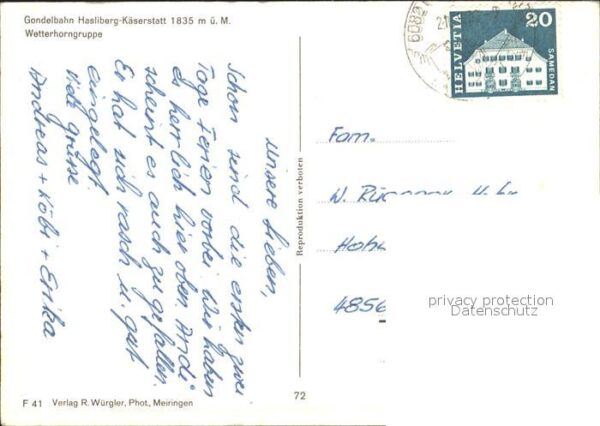 Gondelbahn Hasliberg-Käserstatt 1835 m ü. M.
Wetterhorngruppe
unsere Lieben,
Schon sind die ersten zwei
Tage Ferien vorbei. Wir haben
es herrlich hier oben. Andi
scheint es auch zu gefallen.
Er hat sich rasch u. gut
eingelegt.
viele grüsse
Andreas + Köbi + Erika
F 41 Verlag R. Würgler, Phot., Meiringen
72
Reproduktion verboten
6082
21
HELVETIA
20
SAMEDAN
Fam.
W.
4856
privacy protection
Datenschutz